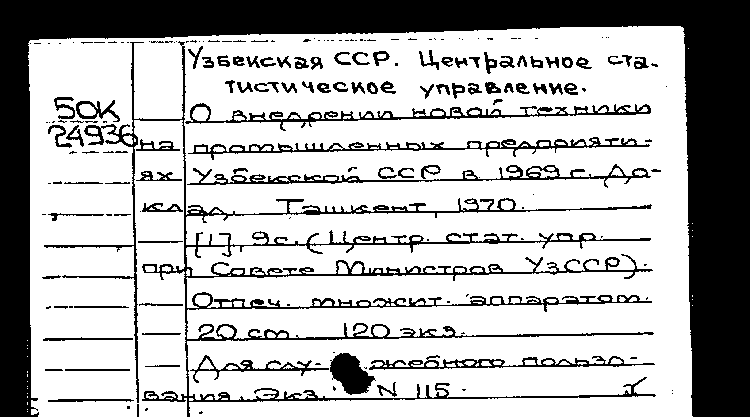 Узбекская ССР. Центральное ста-
тистическое управление.
50К
24936
О внедрении новой техники
на промышленных предприяти-
ях Узбекской ССР в 1969 г. До-
клад. Ташкент, 1970.
[1], 9 с. (Центр. стат. упр.
при Совете Министров УзССР).
Отпеч. множит. аппаратом.
20 см. 120 экз.
Для слу- жебного пользо-
вания. Экз. N 115.